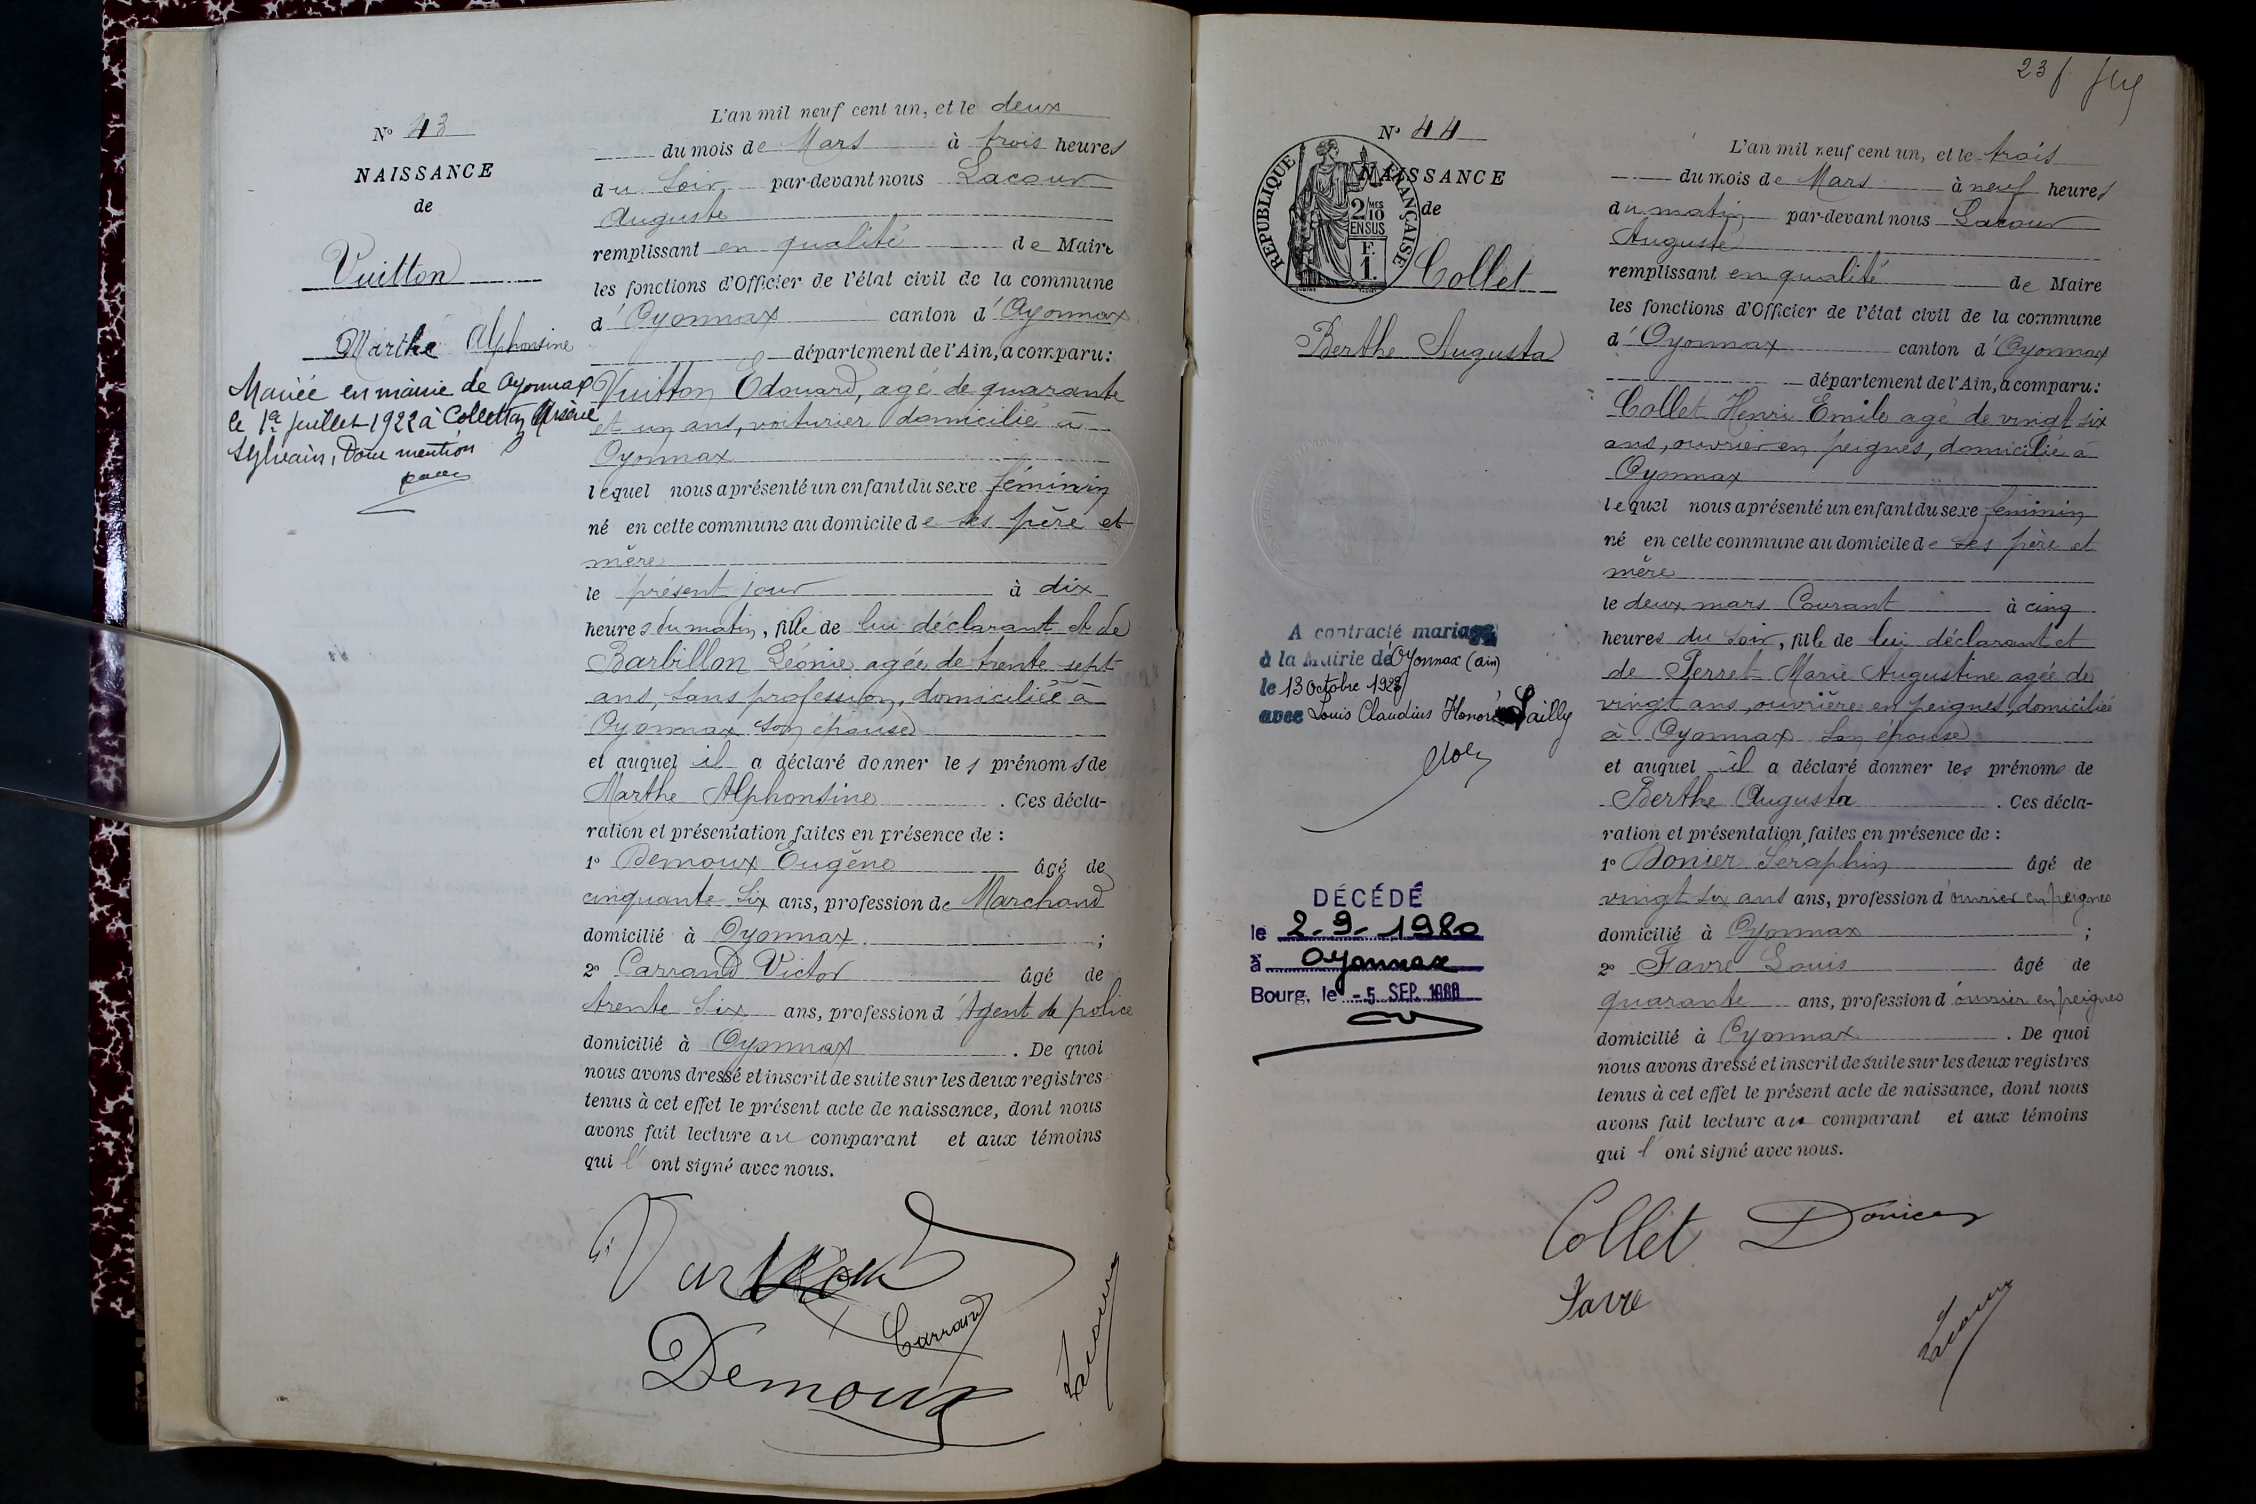 N° 43
NAISSANCE
de
Vuitton
Marthe Alphonsine
Mariée en mairie de Oyonnax
le 1er juillet 1922 à Collettaz Arsène
Sylvain, Dont mention
L'an mil neuf cent un, et le deux
du mois de Mars à trois heures
du soir par-devant nous Lacour
Auguste
remplissant en qualité de Maire
les fonctions d'Officier de l'état civil de la commune
d'Oyonnax canton d'Oyonnax
département de l'Ain, a comparu:
Vuitton Edouard, agé de quarante
et un ans, voiturier domicilié à
Oyonnax
lequel nous a présenté un enfant du sexe féminin
né en cette commune au domicile de ses père et
mère
le présent jour à dix
heures du matin, fille de lui déclarant et de
Barbillon Léonie agée de trente sept
ans, sans profession, domiciliée à
Oyonnax son épouse
et auquel il a déclaré donner les prénoms de
Marthe Alphonsine . Ces décla-
ration et présentation faites en présence de :
1° Demoux Eugène âgé de
cinquante six ans, profession de Marchand
domicilié à Oyonnax ;
2° Carrand Victor âgé de
trente six ans, profession d'Agent de police
domicilié à Oyonnax . De quoi
nous avons dressé et inscrit de suite sur les deux registres
tenus à cet effet le présent acte de naissance, dont nous
avons fait lecture au comparant et aux témoins
qui l'ont signé avec nous.
Vuitton
Carrand
Lacour
Demoux
23 f
N° 44
NAISSANCE
de
RÉPUBLIQUE FRANÇAISE
2/10 MES
EN SUS
F.
1.
Collet
Berthe Augusta
A contracté mariage
à la Mairie de Oyonnax (ain)
le 13 Octobre 1923
avec Louis Claudius Honoré Sailly
DÉCÉDÉ
le 2-9-1980
à Oyonnax
Bourg, le - 5 SEP. 1980
L'an mil neuf cent un, et le trois
du mois de Mars à neuf heures
du matin par-devant nous Lacour
Auguste
remplissant en qualité de Maire
les fonctions d'Officier de l'état civil de la commune
d'Oyonnax canton d'Oyonnax
département de l'Ain, a comparu:
Collet Henri Emile agé de vingt six
ans, ouvrier en peignes, domicilié à
Oyonnax
lequel nous a présenté un enfant du sexe féminin
né en cette commune au domicile de ses père et
mère
le deux mars Courant à cinq
heures du soir, fille de lui déclarant et
de Perret Marie Augustine agée de
vingt ans, ouvrière en peignes, domiciliée
à Oyonnax son épouse
et auquel il a déclaré donner les prénoms de
Berthe Augusta . Ces décla-
ration et présentation faites en présence de :
1° Donier Seraphin âgé de
vingt six ans ans, profession d'ouvrier en peignes
domicilié à Oyonnax ;
2° Favre Louis âgé de
quarante ans, profession d'ouvrier en peignes
domicilié à Oyonnax . De quoi
nous avons dressé et inscrit de suite sur les deux registres
tenus à cet effet le présent acte de naissance, dont nous
avons fait lecture au comparant et aux témoins
qui l'ont signé avec nous.
Collet Donier
Favre
Lacour